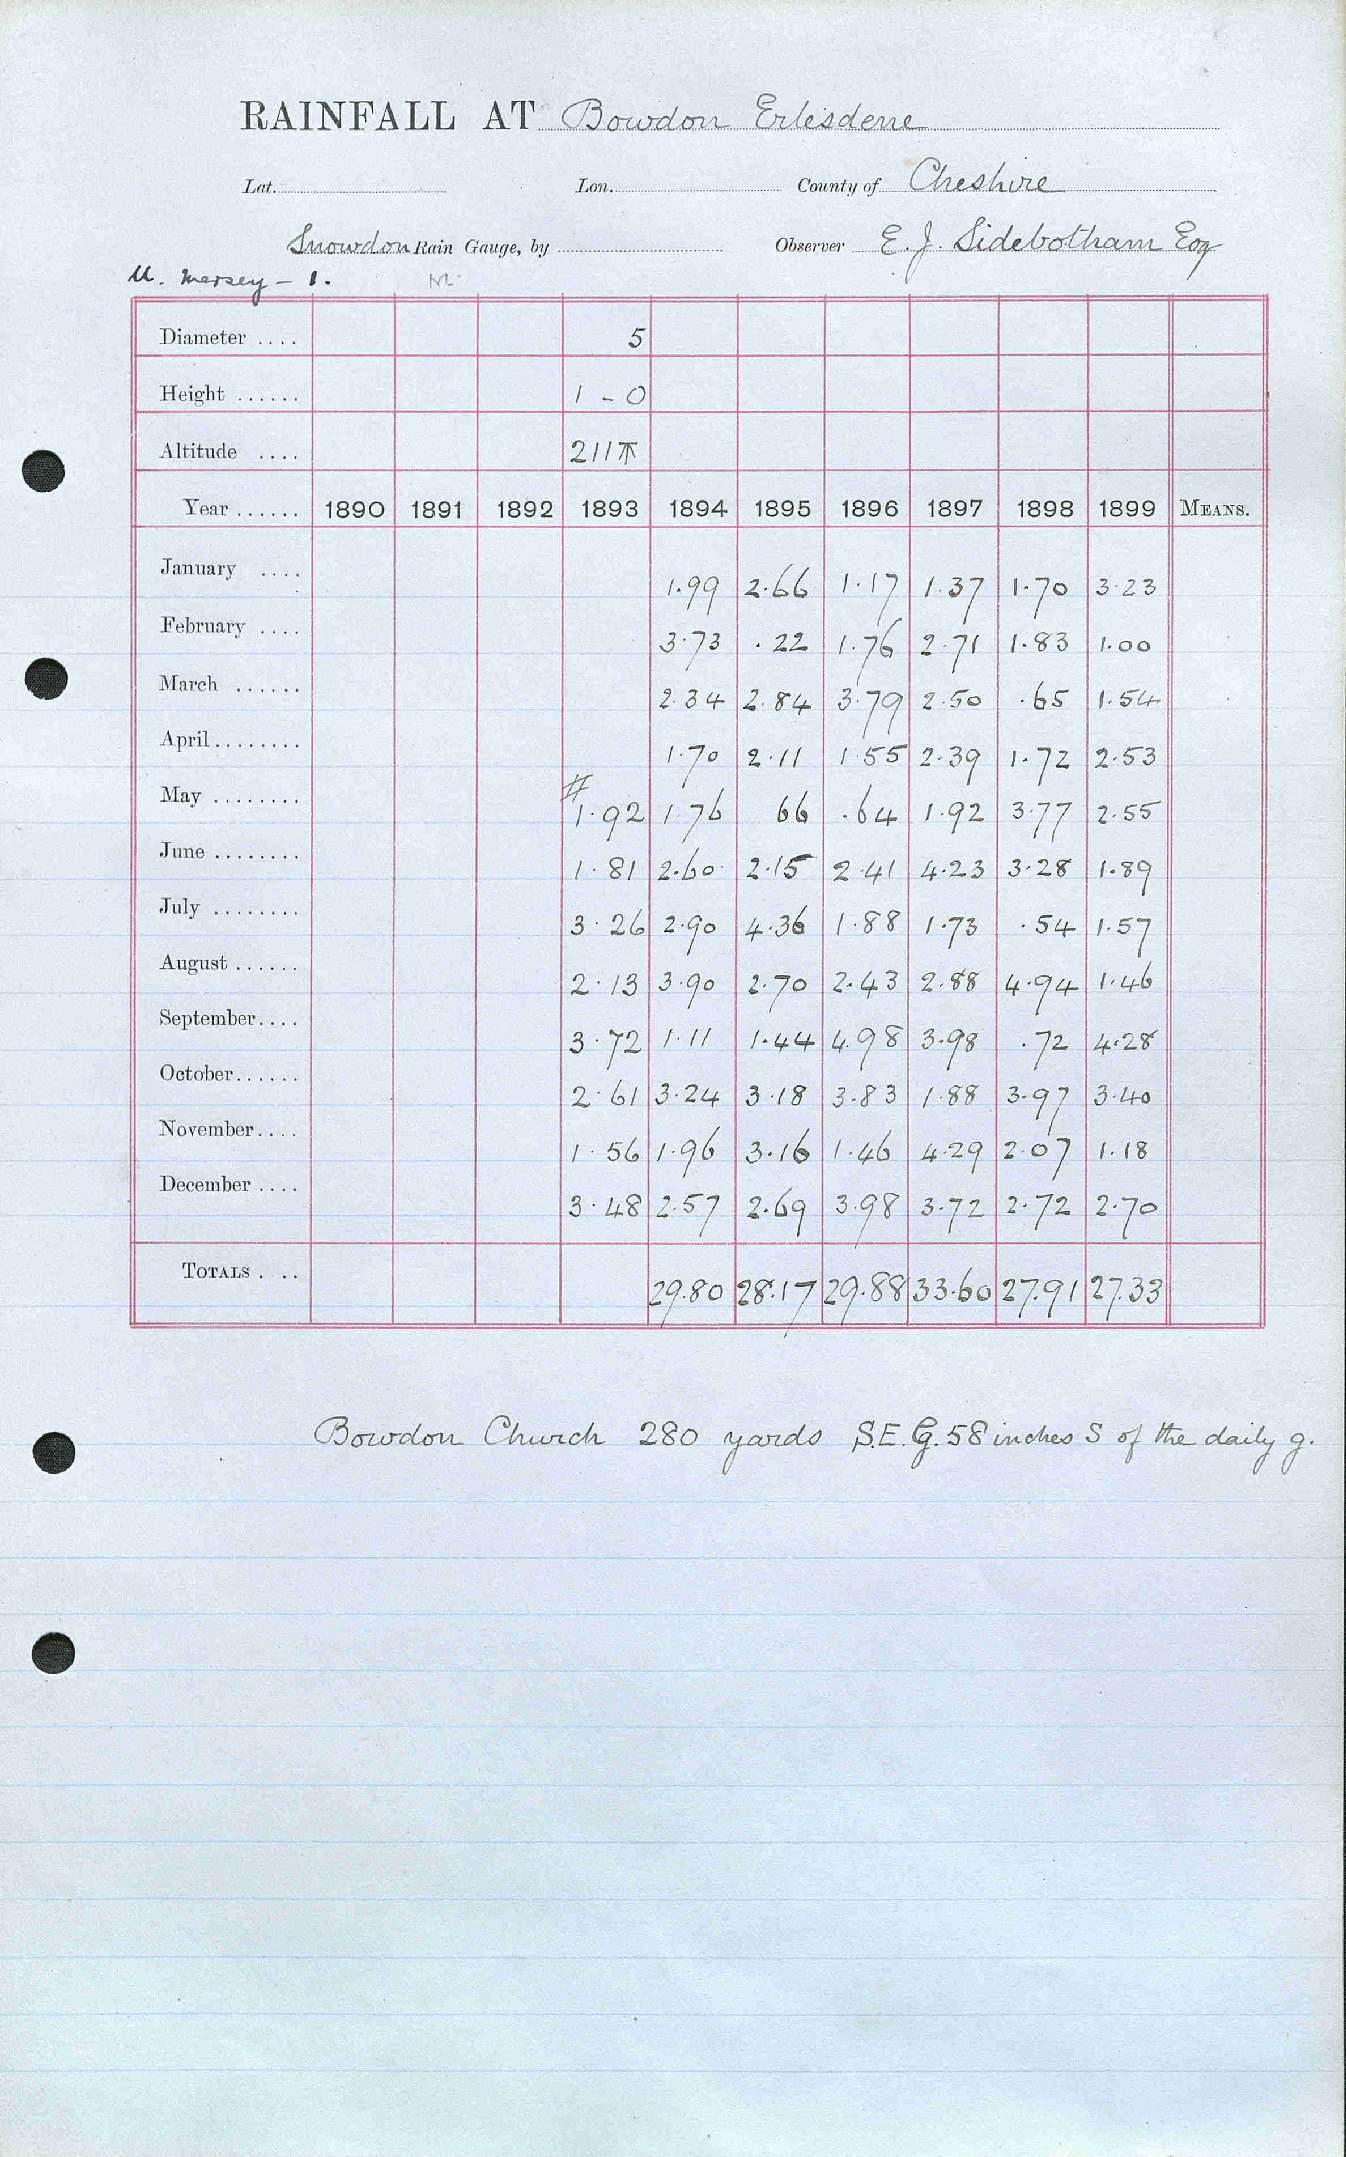 RAINFALL AT Bowdon Erlesdene
Lat. Lon. County of Cheshire
Snowdon Rain Gauge, by Observer E. J. Sidebotham Esq
M. Mersey - 1.
Diameter .... 5
Height ...... 1 - 0
Altitude .... 211
Year ...... 1890 1891 1892 1893 1894 1895 1896 1897 1898 1899 MEANS.
January .... 1.99 2.66 1.17 1.37 1.70 3.23
February .... 3.73 .22 1.76 2.71 1.83 1.00
March ...... 2.34 2.84 3.79 2.50 .65 1.54
April ........ 1.70 2.11 1.55 2.39 1.72 2.53
May ........ # 1.92 1.76 66 .64 1.92 3.77 2.55
June ........ 1.81 2.60 2.15 2.41 4.23 3.28 1.89
July ........ 3.26 2.90 4.36 1.88 1.73 .54 1.57
August ...... 2.13 3.90 2.70 2.43 2.88 4.94 1.46
September.... 3.72 1.11 1.44 4.98 3.98 .72 4.28
October...... 2.61 3.24 3.18 3.83 1.88 3.97 3.40
November.... 1.56 1.96 3.16 1.46 4.29 2.07 1.18
December .... 3.48 2.57 2.69 3.98 3.72 2.72 2.70
TOTALS .... 29.80 28.17 29.88 33.60 27.91 27.33
Bowdon Church 280 yards S.E. G. 58 inches S of the daily g.